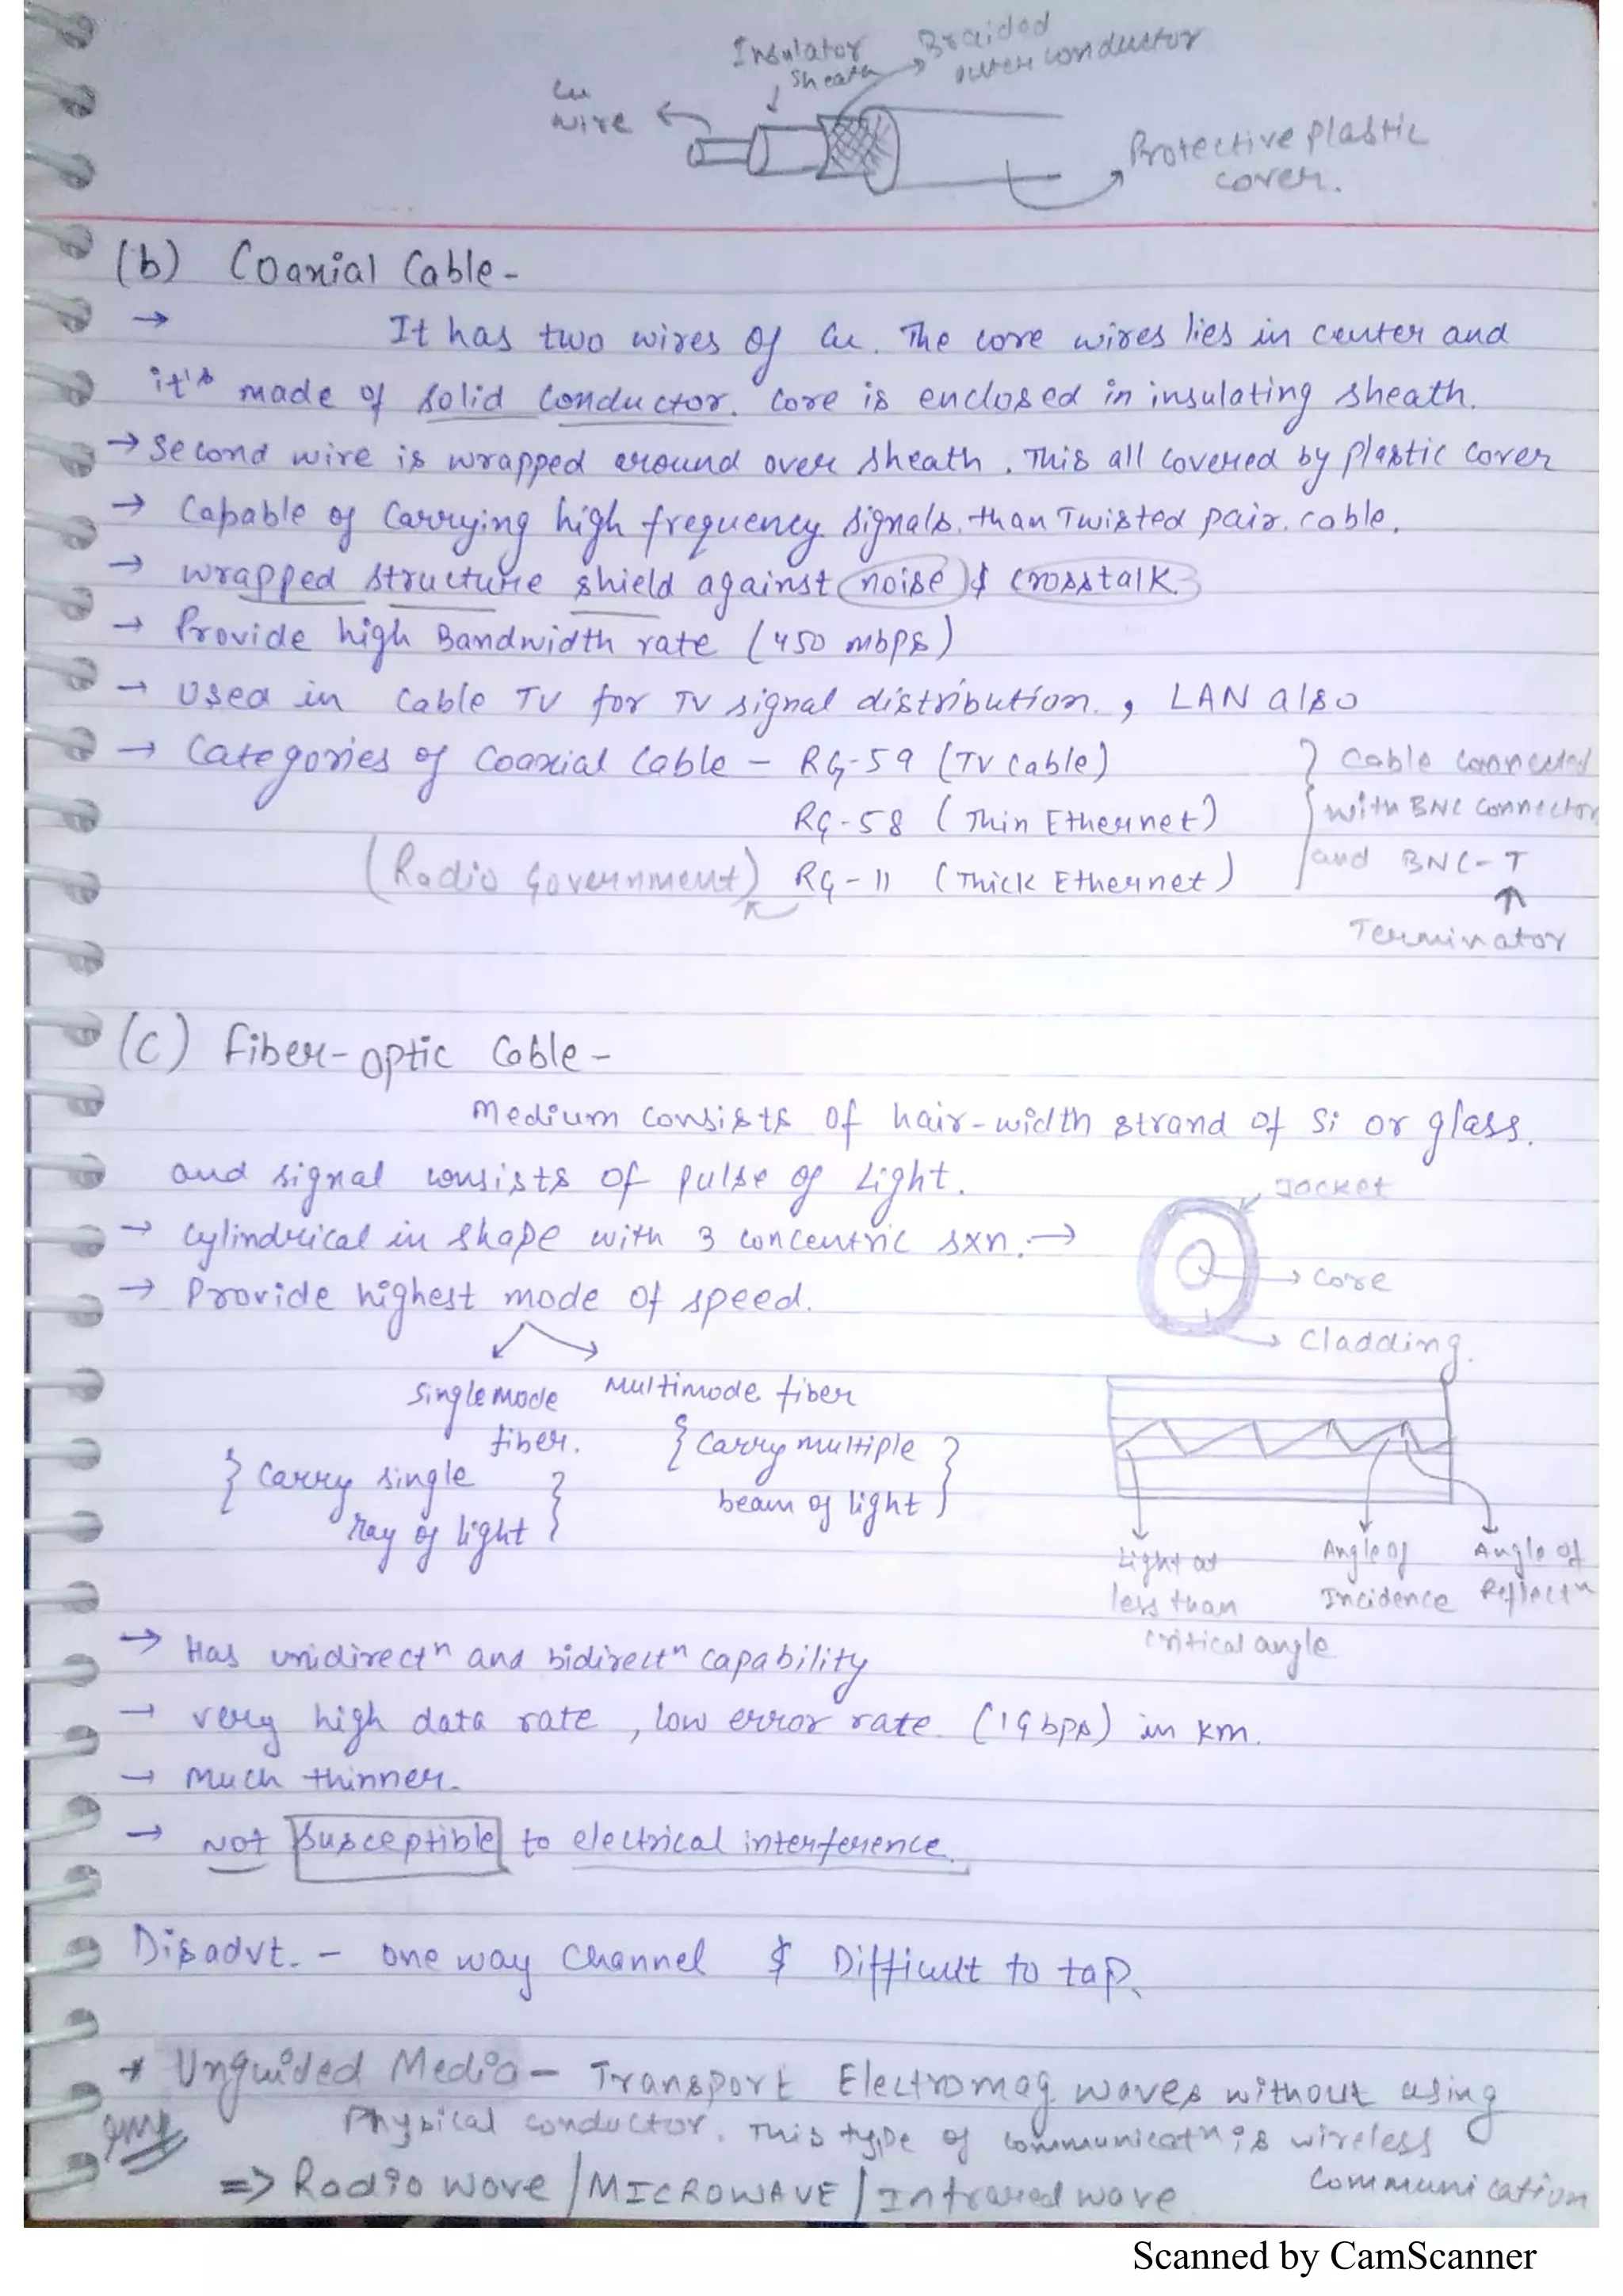 Insulator
Sheath
Braided
outer conductor
Cu
wire
Protective plastic
cover.
(b) Coaxial Cable -
→ It has two wires of Cu. The core wires lies in center and
it's made of solid conductor. Core is enclosed in insulating sheath.
→ Second wire is wrapped around over sheath. This all covered by plastic cover
→ Capable of carrying high frequency signals. than Twisted pair. cable.
→ wrapped structure shield against noise & crosstalk
→ Provide high Bandwidth rate (450 mbps)
→ Used in Cable TV for TV signal distribution. , LAN also
→ Categories of Coaxial Cable - RG-59 (TV Cable)
RG-58 (Thin Ethernet)
(Radio Government) RG-11 (Thick Ethernet)
} Cable connected
with BNC connector
and BNC-T
↑
Terminator
(c) Fiber-optic Cable -
Medium consists of hair-width strand of Si or glass.
and signal consists of pulse of Light.
→ Cylindrical in shape with 3 concentric sxn. →
Jacket
→ Core
→ Cladding.
→ Provide highest mode of speed.
Single mode
fiber.
Multimode fiber
{ Carry single
ray of light }
{ Carry multiple
beam of light }
Light at
less than
critical angle
Angle of
Incidence
Angle of
Reflectn
→ Has unidirectn and bidirectn capability
→ very high data rate , low error rate (1Gbps) in km.
→ Much thinner.
→ Not susceptible to electrical interference.
Disadvt. - one way Channel & Difficult to tap.
* Unguided Media - Transport Electromag waves without using
Physical conductor. This type of communicatn is wireless
communication
imp
=> Radio wave / MICROWAVE / Infrared wave
Scanned by CamScanner